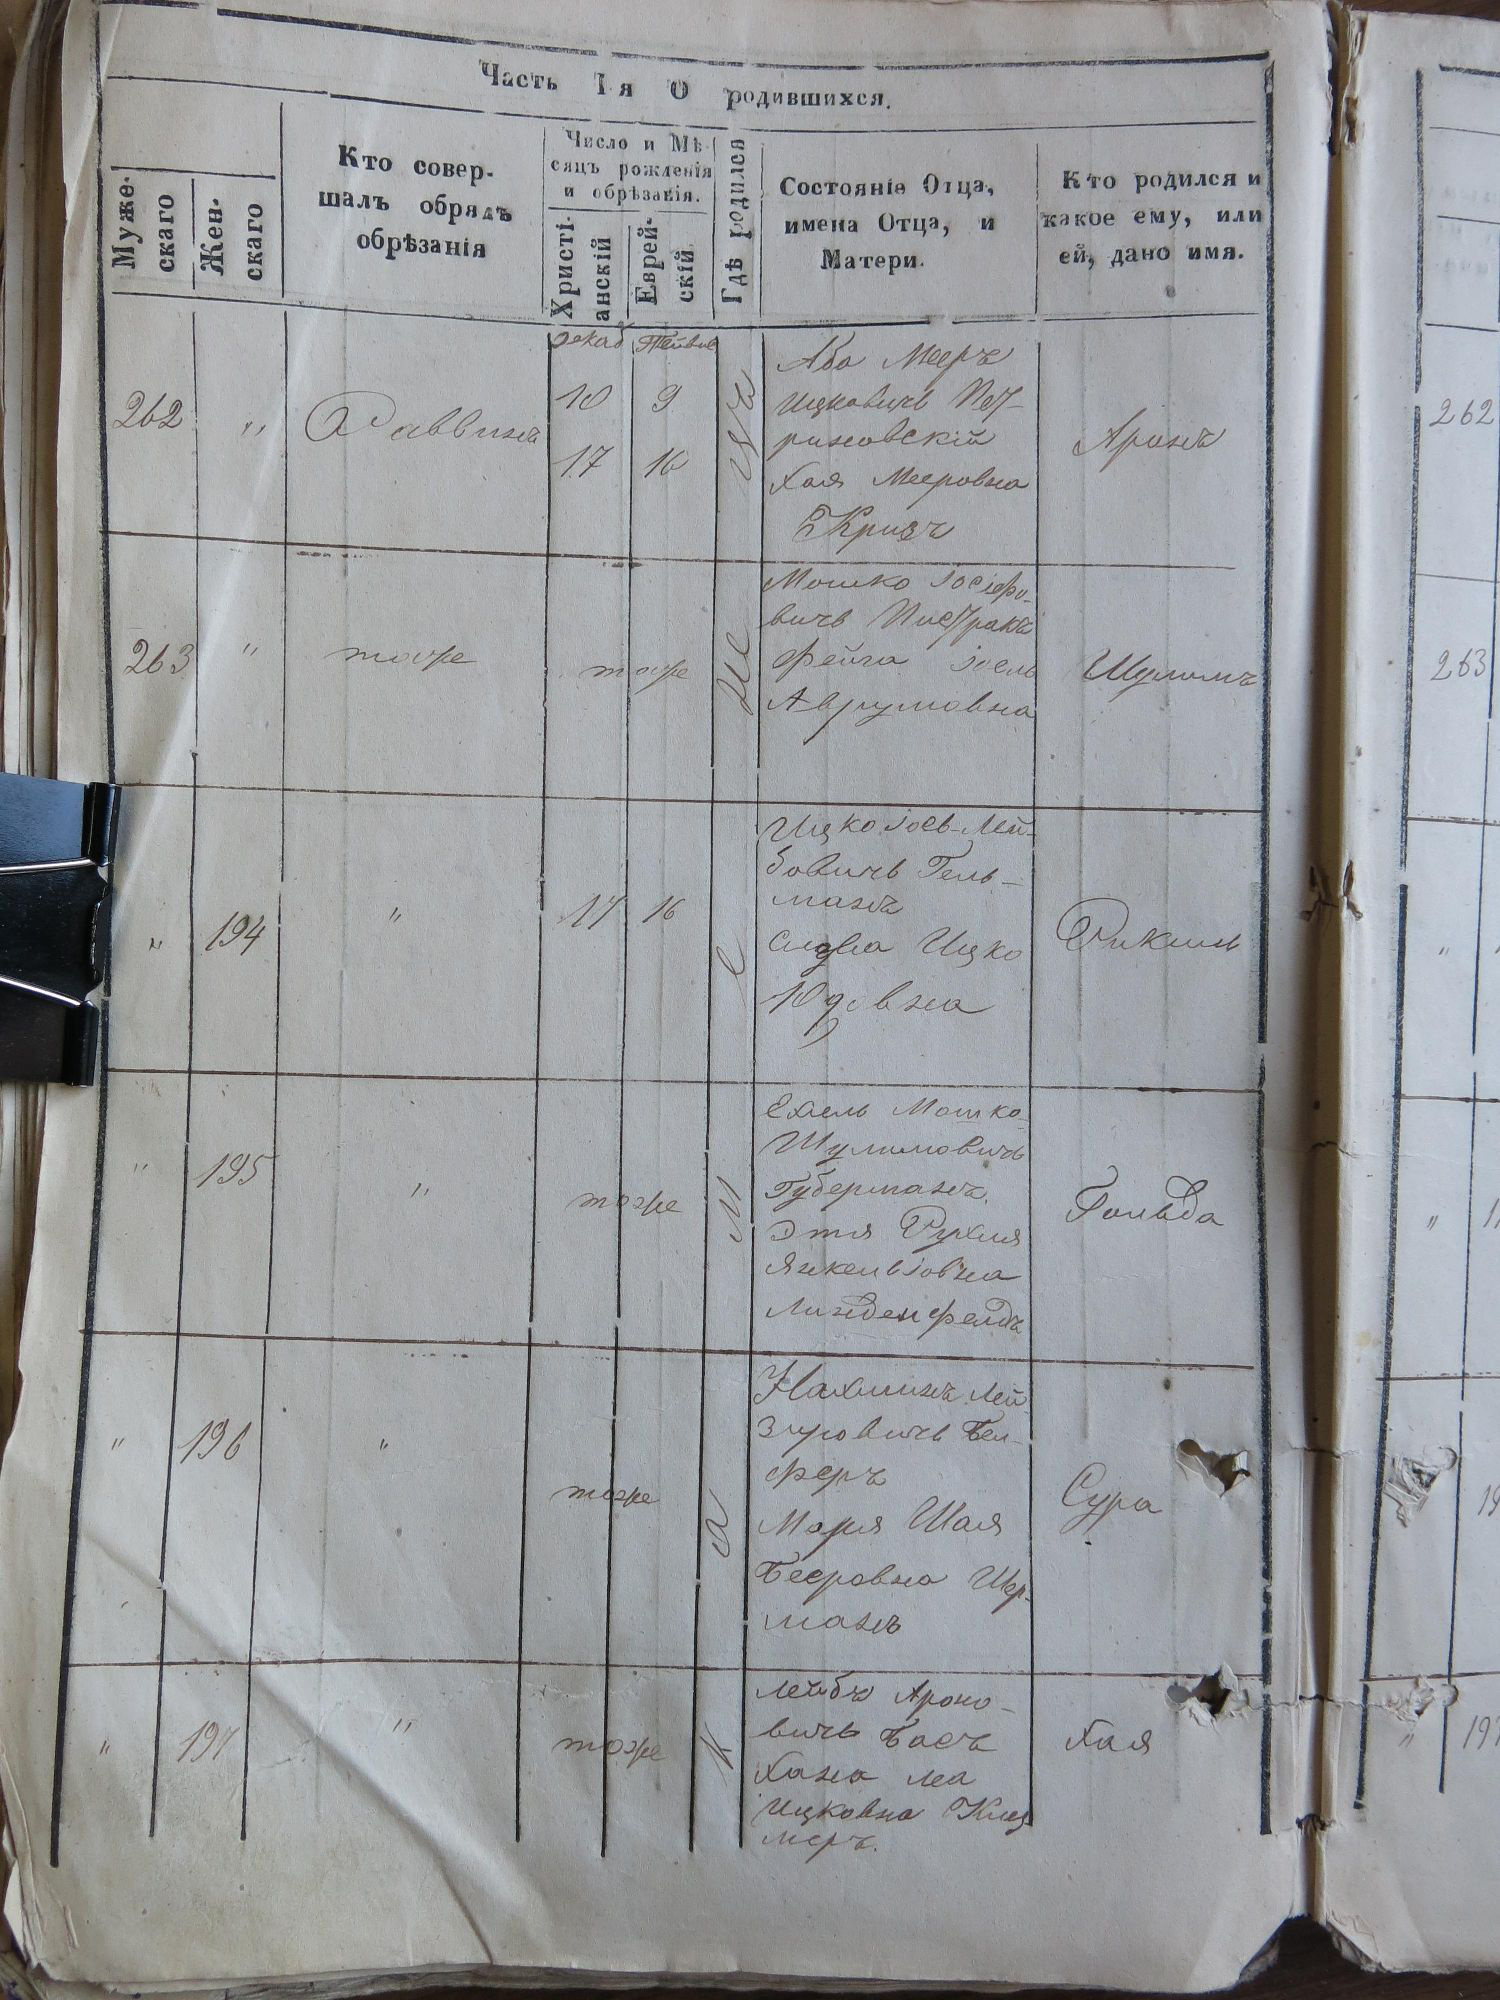 Часть I я О родившихся.
Муже-
скаго
Жен-
скаго
Кто совер-
шалъ обрядъ
обрѣзанія
Число и Мѣ-
сяцъ рожденія
и обрѣзанія.
Христі-
анскій
Еврей-
скій
Гдѣ родился
Состояніе Отца,
имена Отца, и
Матери.
Кто родился и
какое ему, или
ей, дано имя.
декаб
262 " Раввинъ
10 9
17 16
Аба Мееръ
Ицковичъ Пет-
риковскій
Хая Мееровна
Кризъ
Аронъ
263 " тоже тоже
Мошко Іосіфо-
вичъ Пистракъ
Фейга
Аврумовна
Шулимъ
" 194 " 17 16
Ицко Іосъ-Лей-
бовичъ Гель-
манъ
Ицко
Юдовна
" 195 " тоже
Ехель Мошко-
Шулимовичъ
Губерманъ.
Этя Рухля
Линденфельдъ
Гольда
" 196 " тоже
Нахманъ Лей-
зеровичъ Бел-
феръ
Марья Шая
Бееровна Шер-
манъ
Сура
" 197 " тоже
Лейбъ Ароно-
вичъ Басъ
Хана Леа
Ицковна Клез-
меръ.
Хая
262
263
" "
"
197